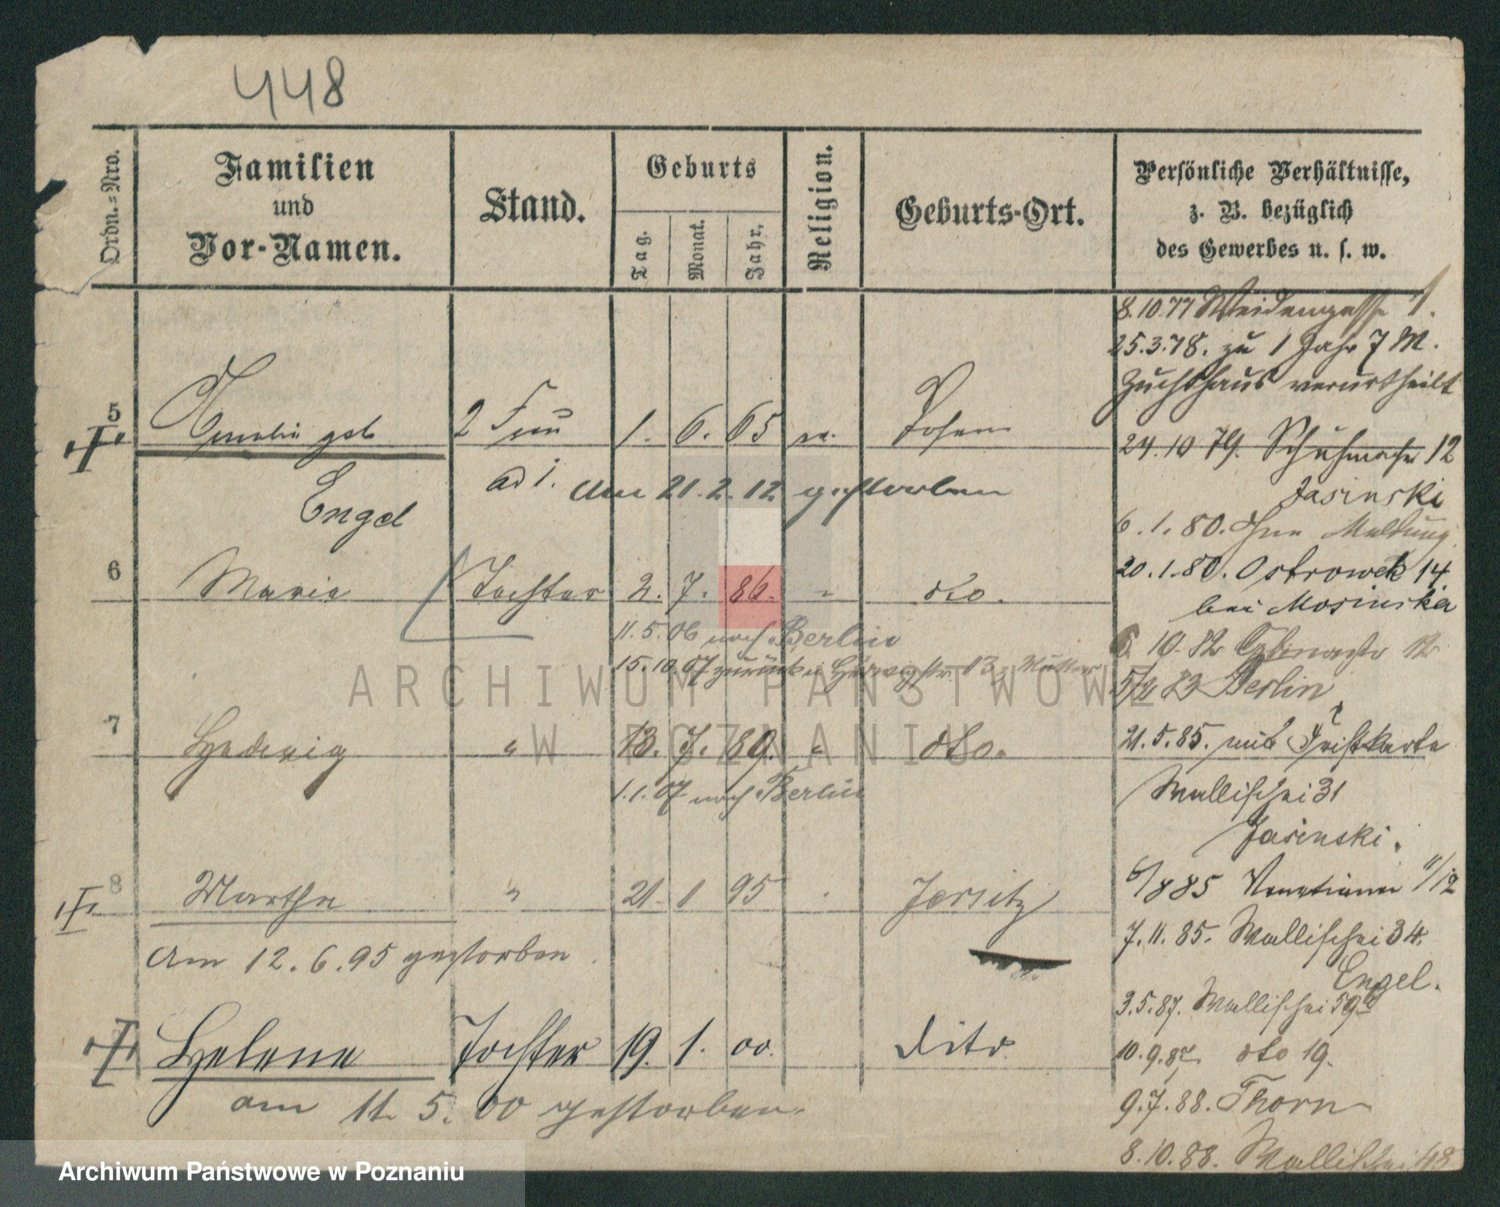 448
Ordn.=Nro.
Familien
und
Vor-Namen.
Stand.
Geburts
Tag.
Monat.
Jahr.
Religion.
Geburts-Ort.
Persönliche Verhältnisse,
z. B. bezüglich
des Gewerbes u. s. w.
8.10.77 Weidengasse 1.
25.3.78. zu 1 Jahr 7 M.
Zuchthaus verurtheilt
5 Amalie geb 2 Frau 1. 6. 65 Posen
Engel ad 1. Am 21. 2. 12. gestorben
24.10 79. Schuhmacher 12
Jasinski
6.1.80. Ohne Meldung
20.1.80. Ostrowek 14.
bei Mosinska
6 Marie Tochter 2. 7. 86. " dto.
11.5.06 nach Berlin
15.10.07 zurück 13 Mutter
10.82
83 Berlin
7 Hedwig " 13. 7. 89. " dto.
1.1.07 nach Berlin
21.5.85. mit
Wallischei 31
Jasinski.
8 Martha " 21. 1 95 Jersitz
Am 12.6.95 gestorben.
6/8 85 Venetianer 11/12
7.11.85. Wallischei 34.
Engel.
3.5.87. Wallischei 59
Helene Tochter 19. 1. 00. dito
am 11. 5. 00 gestorben.
10.9.87 dto 19.
9.7.88. Thorn
8.10.88. Wallischei 48
ARCHIWUM PAŃSTWOWE
W POZNANIU
Archiwum Państwowe w Poznaniu